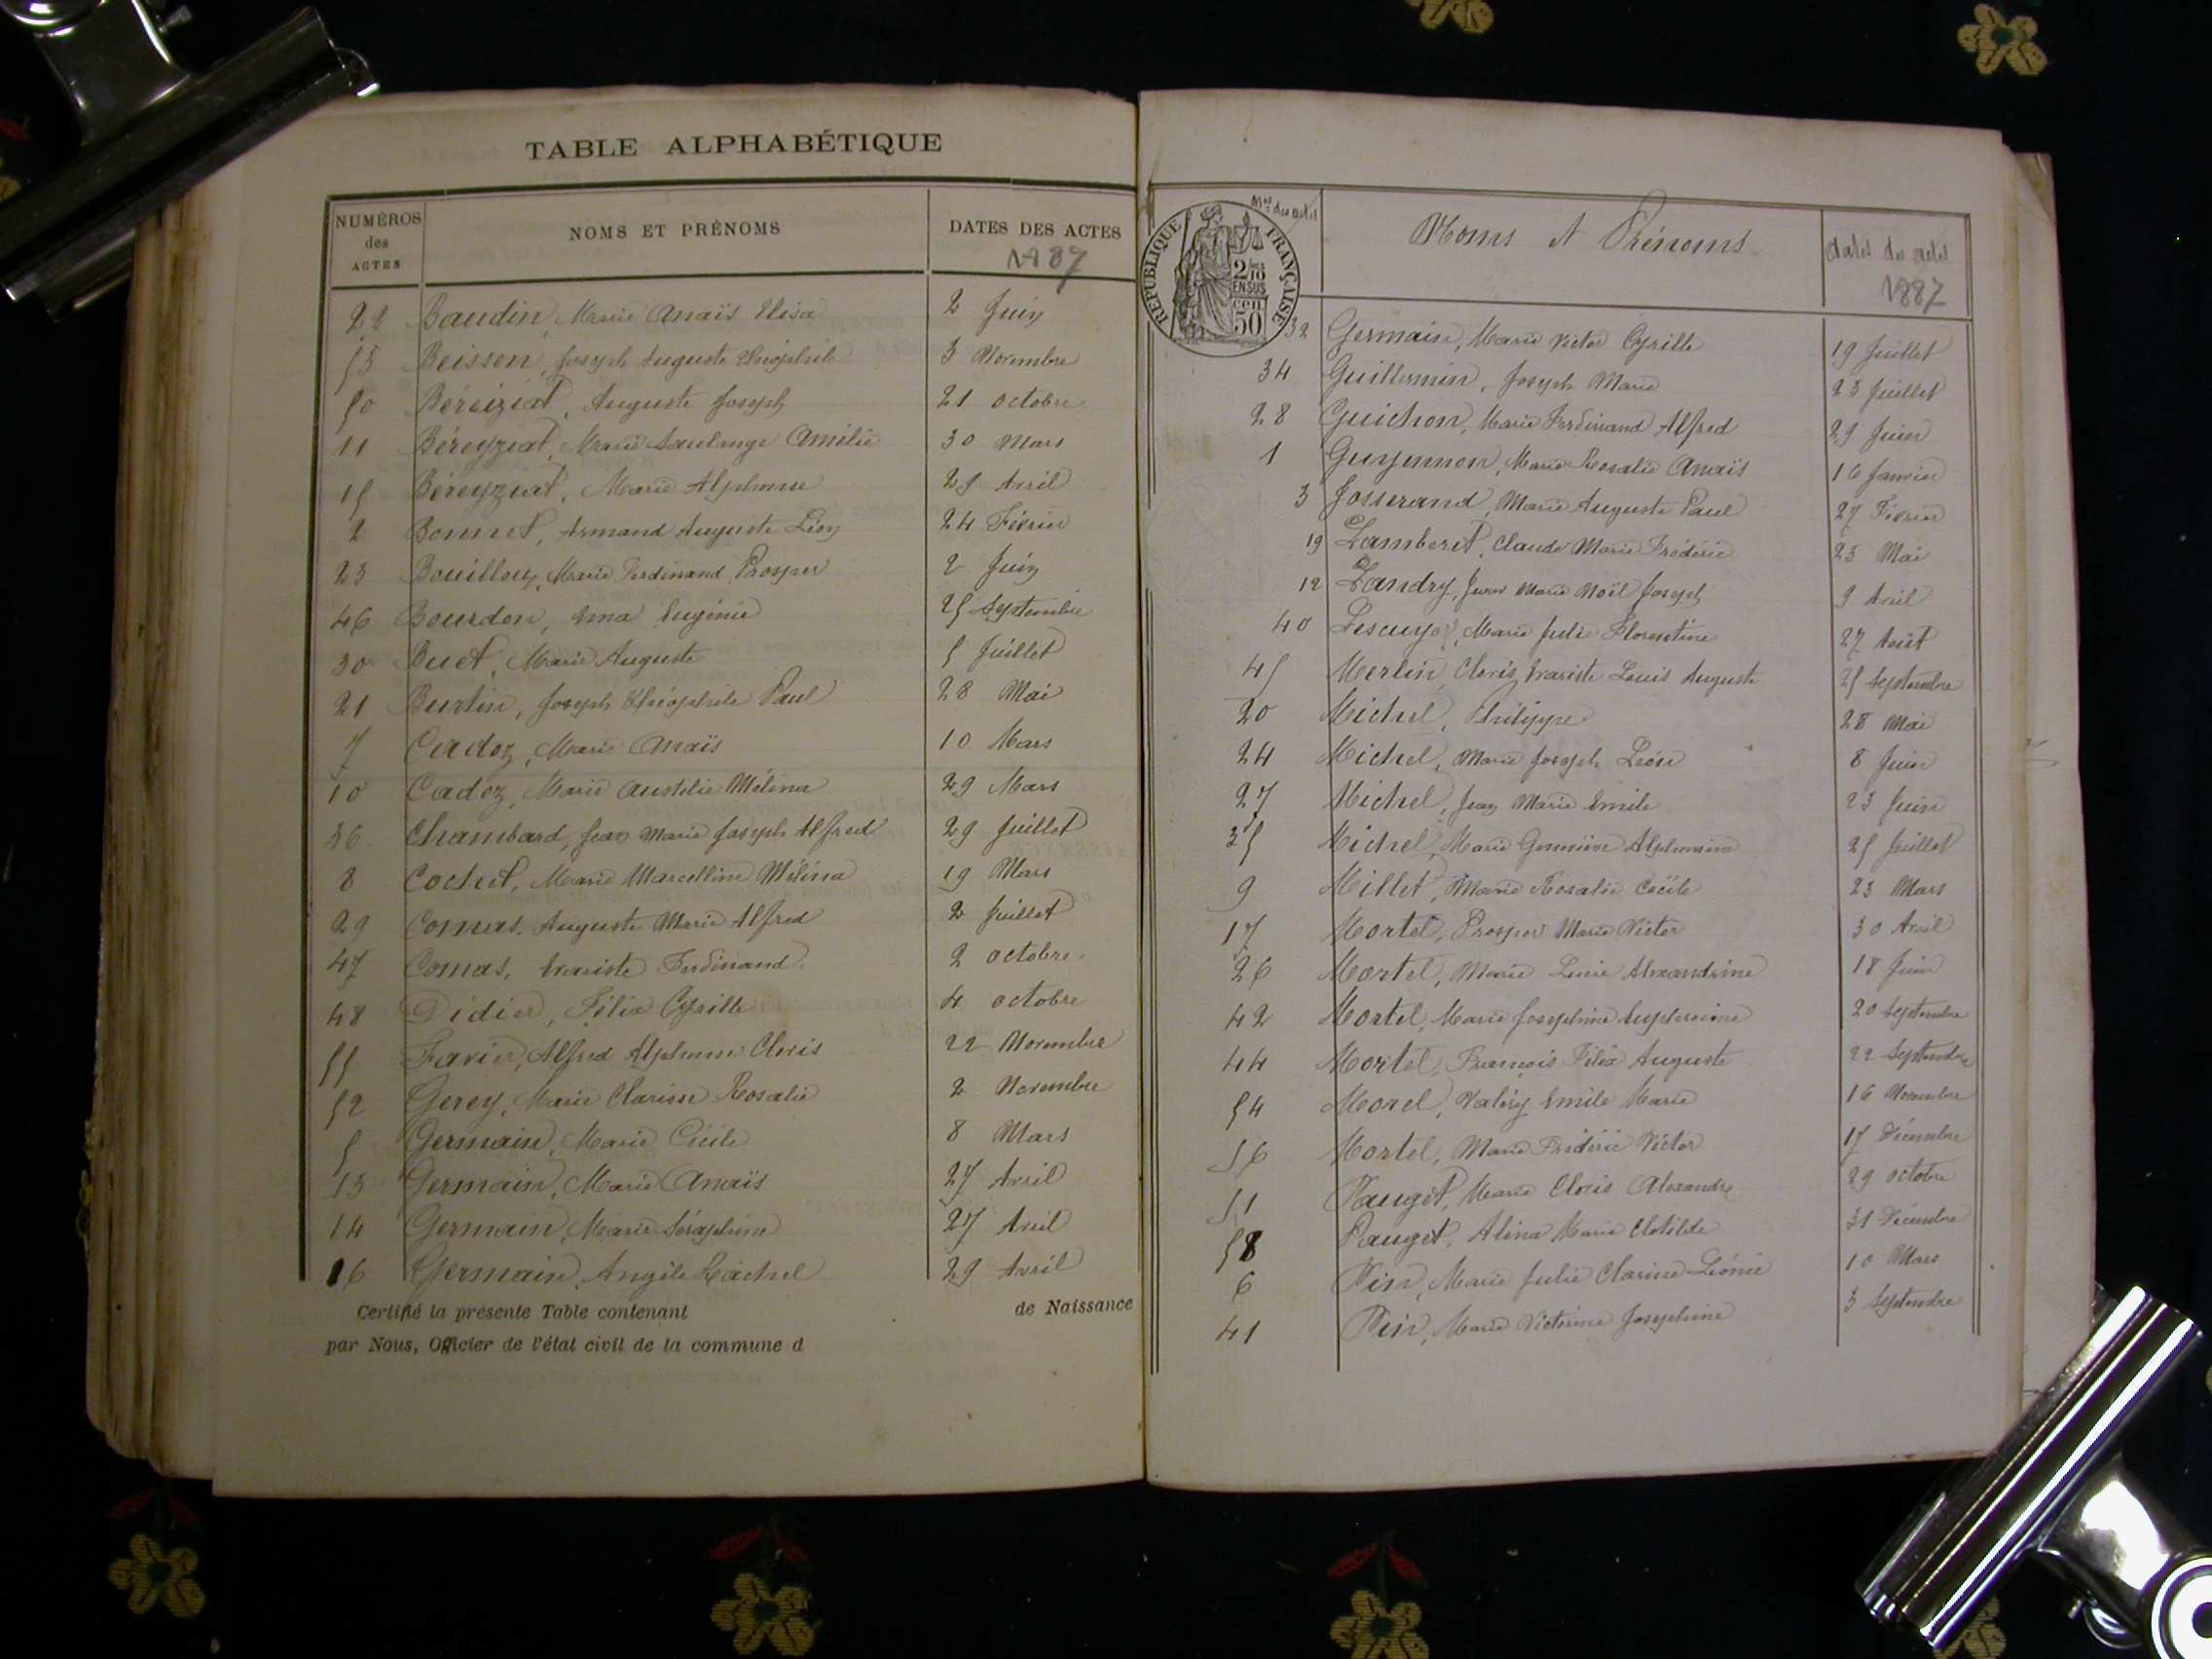 TABLE ALPHABÉTIQUE
NUMÉROS des ACTES NOMS ET PRÉNOMS DATES DES ACTES
1887
22 Baudin, Marie Anaïs Elisa 2 Juin
53 Beissen, Joseph Auguste Théophile 3 Novembre
50 Béréiziat, Auguste Joseph 21 octobre
11 Béreyziat, Marie Saulange Amélie 30 Mars
15 Béreyziat, Marie Alphonse 29 Avril
2 Bonnet, Armand Auguste Léon 24 Février
23 Bouilloux, Marie Ferdinand Prosper 2 Juin
46 Bourdon, Ema Eugénie 25 Septembre
30 Buet, Marie Auguste 5 Juillet
21 Burtin, Joseph Théophile Paul 28 Mai
7 Cadoz, Marie Anaïs 10 Mars
10 Cadoz, Marie Mélina 29 Mars
36 Chambard, Jean Marie Joseph Alfred 29 Juillet
8 Cochet, Marie Marcelline Mélina 19 Mars
29 Comas, Auguste Marie Alfred 2 Juillet
47 Comas, Evariste Ferdinand 2 octobre
48 Didier, Félix Cyrille 4 octobre
55 Favier, Alfred Alphonse Cloris 22 Novembre
52 Gerey, Marie Clarisse Rosalie 2 Novembre
5 Germain, Marie Cécile 8 Mars
13 Germain, Marie Anaïs 27 Avril
14 Germain, Marie Séraphin 27 Avril
16 Germain, Angèle Rachel 29 Avril
Certifié la présente Table contenant de Naissance
par Nous, Officier de l'état civil de la commune d
RÉPUBLIQUE FRANÇAISE
2/10 EN SUS
50 cen
Nos des actes Noms et Prénoms dates des actes
1887
32 Germain, Marie Victor Cyrille 19 Juillet
34 Guillermin, Joseph Marie 23 Juillet
28 Guichon, Marie Ferdinand Alfred 29 Juin
1 Guyennon, Marie Rosalie Anaïs 16 Janvier
3 Josserand, Marie Auguste Paul 27 Février
19 Lamberet, Claude Marie Frédéric 23 Mai
12 Landry, Jean Marie Noël Joseph 9 Avril
40 Lescuyer, Marie Julie Florentine 27 Août
45 Merlin, Cloris Evariste Louis Auguste 25 Septembre
20 Michel, Philippe 28 Mai
24 Michel, Marie Joseph Léon 8 Juin
27 Michel, Jean Marie Emile 23 Juin
35 Michel, Marie Geneviève Alphonsine 25 Juillet
9 Millet, Marie Rosalie Cécile 23 Mars
17 Mortel, Prosper Marie Victor 30 Avril
26 Mortel, Marie Lucie Alexandrine 18 Juin
42 Mortel, Marie Joséphine Euphrosine 20 Septembre
44 Mortel, François Félix Auguste 22 Septembre
54 Morel, Valéry Emile Marie 16 Novembre
56 Mortel, Marie Frédéric Victor 17 Décembre
51 Pauget, Marie Cloris Alexandre 29 octobre
58 Pauget, Alina Marie Clotilde 31 Décembre
6 Pin, Marie Julie Clarisse Léonie 10 Mars
41 Pin, Marie Victorine Joséphine 3 Septembre